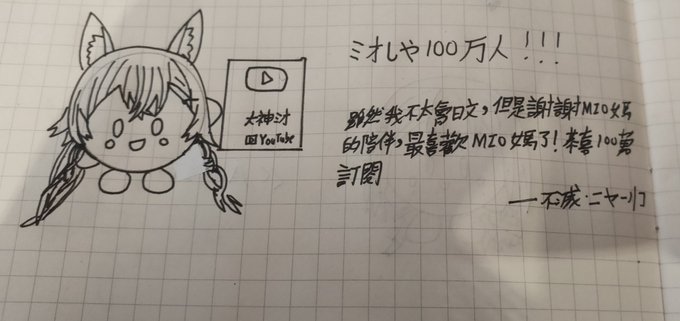 大神ミオ
YouTube
ミオしゃ100万人!!!
雖然我不太會日文，但是謝謝MIO媽
的陪伴，最喜歡MIO媽了！恭喜100萬
訂閱
—不滅·